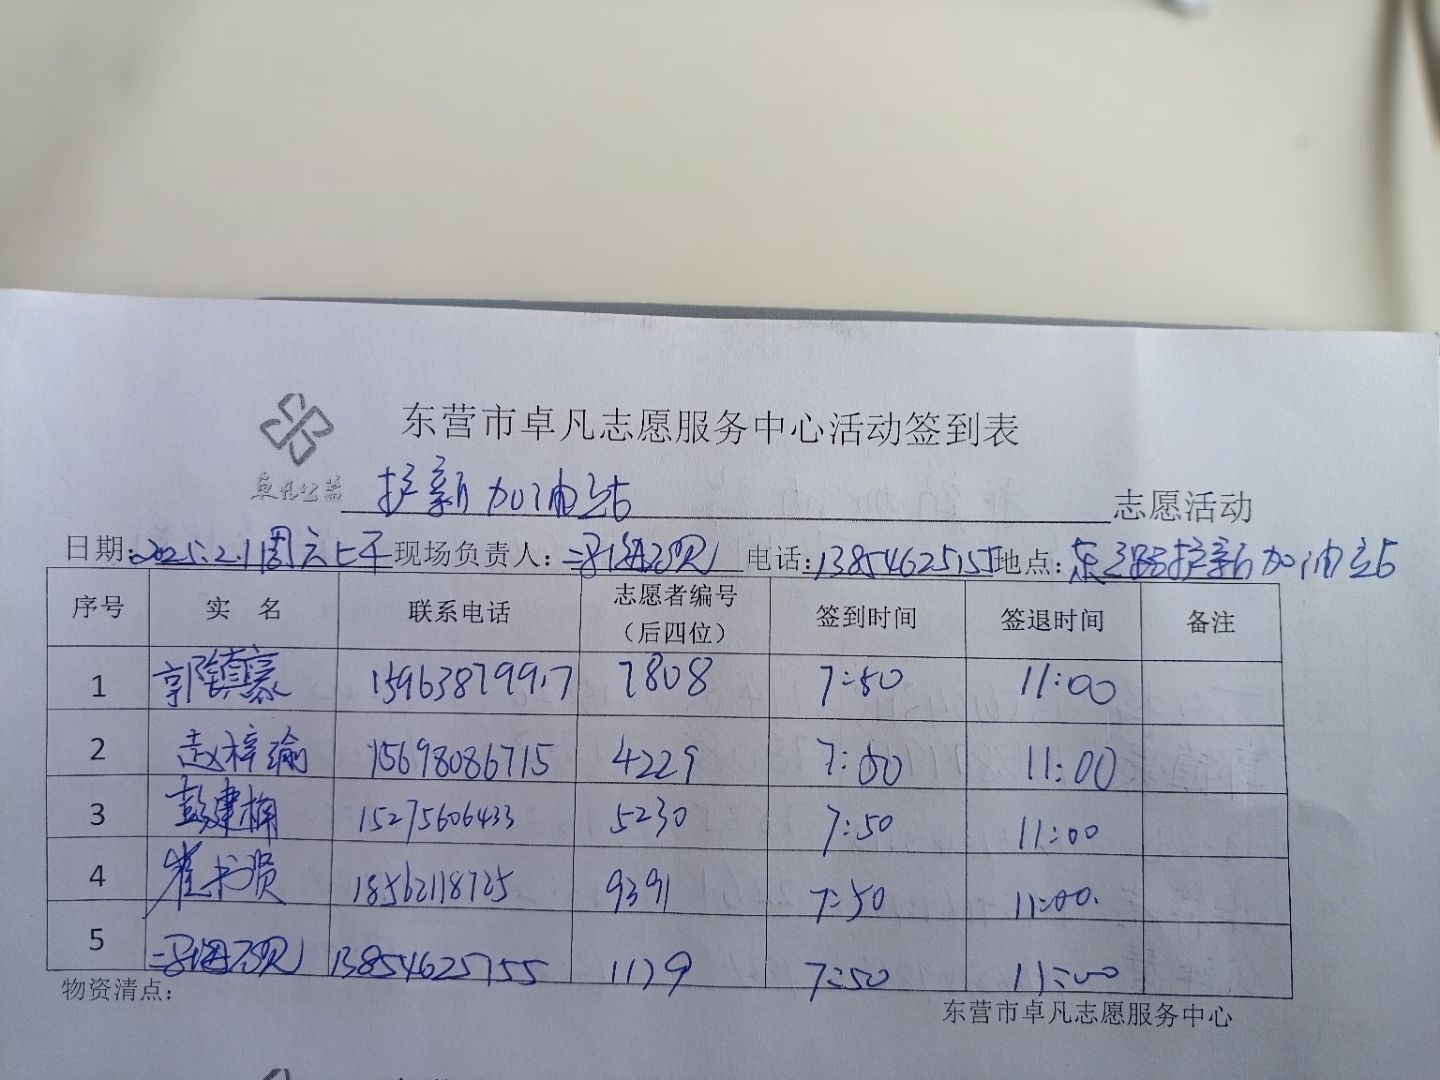 东营市卓凡志愿服务中心活动签到表
卓凡公益
护薪加油站 志愿活动
日期:2025.2.1周六上午 现场负责人: 电话:13854625155 地点:东三路护薪加油站
序号 实 名 联系电话 志愿者编号（后四位） 签到时间 签退时间 备注
1 郭镇豪 15963879917 7808 7:50 11:00
2 赵梓瑜 15698086715 4229 7:50 11:00
3 彭建楠 15275606433 5230 7:50 11:00
4 崔书贤 18562118725 9391 7:50 11:00
5 13854625755 1179 7:50 11:00
物资清点:
东营市卓凡志愿服务中心